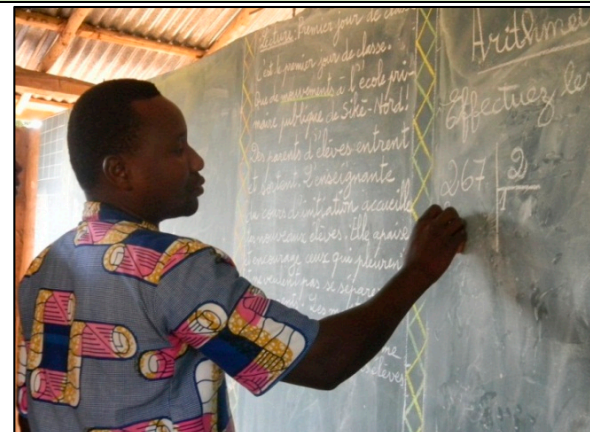 Lecture: Premier jour de clas
C'est le premier jour de classe.
Que de mouvements à l'école pri-
maire publique de Sikè-Nord!
Des parents d'élèves entrent
et sortent. L'enseignante
du cours d'initiation accueille
les nouveaux élèves. Elle apaise
encourage ceux qui pleurent
se sépare
Les
élèves
Arithmé
Effectuez les
267 2